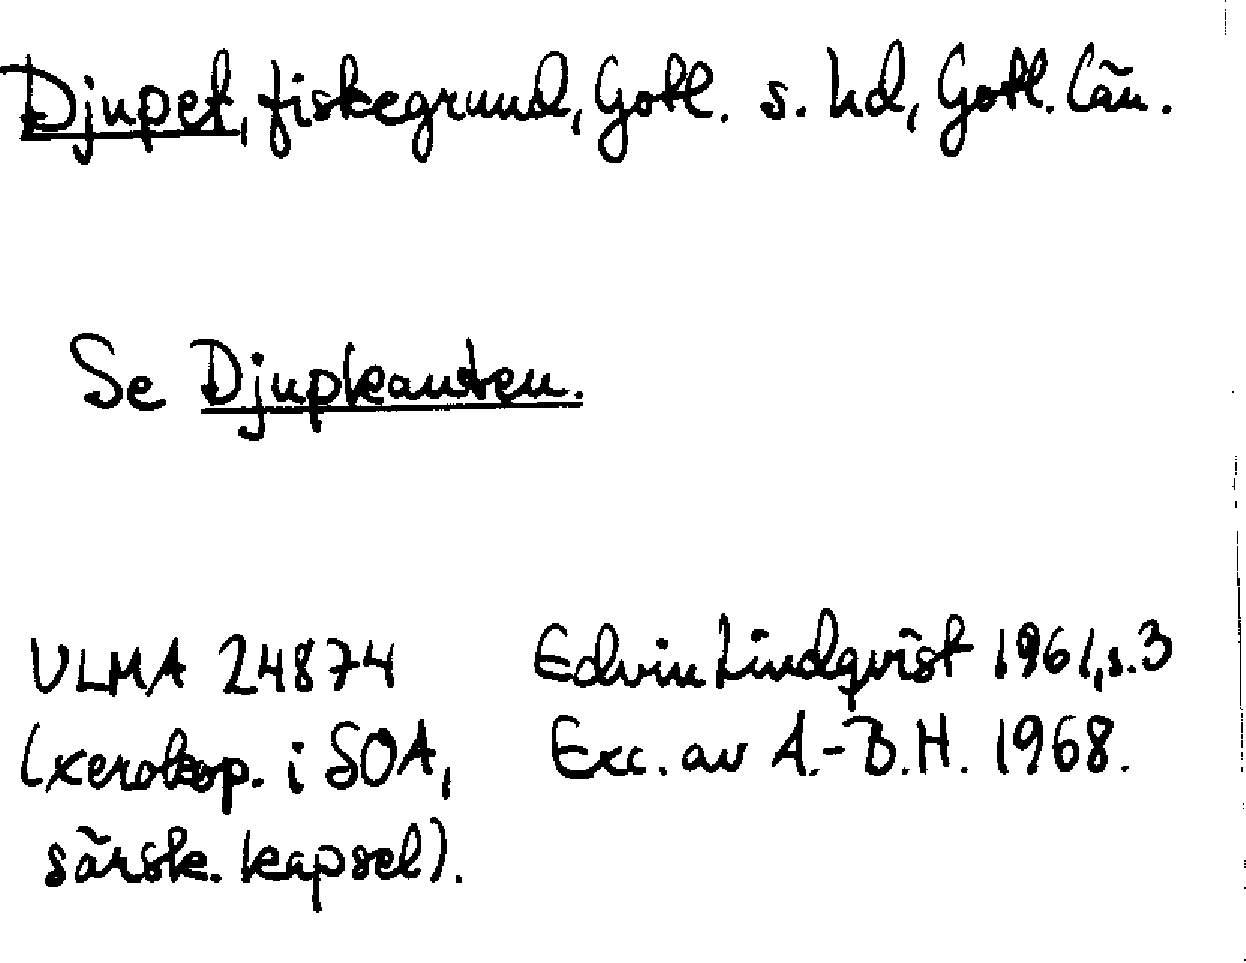 Djupet, fiskegrund, Gotl. s. hd, Gotl. län.
Se Djupkanten.
ULMA 24874
(xerokop. i SOA,
särsk. kapsel).
Edvin Lindqvist 1961, s. 3
Exc. av A.-B.H. 1968.